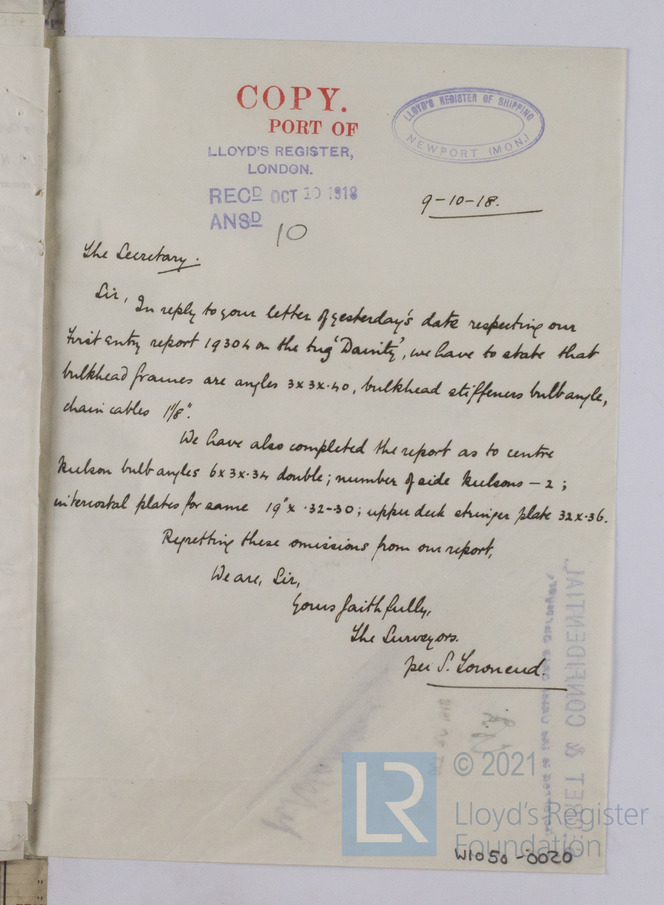 COPY.
PORT OF
LLOYD'S REGISTER,
LONDON.
RECD OCT 10 1918
ANSD
10
LLOYD'S REGISTER OF SHIPPING
NEWPORT (MON.)
9-10-18.
The Secretary.
Sir,
In reply to your letter of yesterday's date respecting our
First Entry report 19304 on the tug 'Dainty', we have to state that
bulkhead frames are angles 3x3x.40, bulkhead stiffeners bulb angle,
chain cables 1 1/8".
We have also completed the report as to centre
keelson bulb angles 6x3x.34 double; number of side keelsons - 2;
intercostal plates for same 19" x .32-30; upper deck stringer plate 32x.36.
Regretting these omissions from our report,
We are, Sir,
Yours faithfully,
The Surveyors.
per S. Townend.
SECRET & CONFIDENTIAL
LR
© 2021
Lloyd's Register
Foundation
W1050-0020